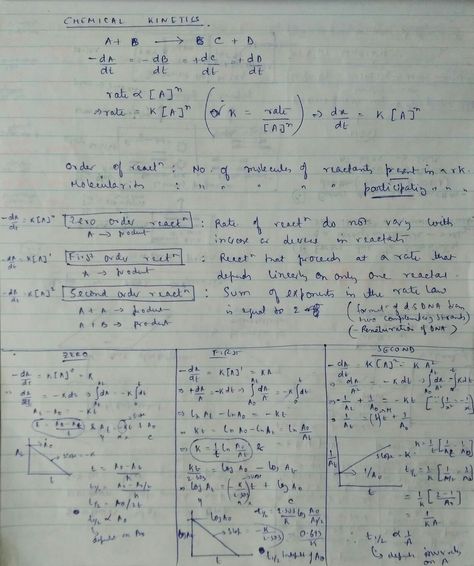 CHEMICAL KINETICS
A + B → C + D
-dA/dt = -dB/dt = +dC/dt = +dD/dt
rate ∝ [A]^n
⇒ rate = K[A]^n (or K = rate/[A]^n) ⇒ dx/dt = K[A]^n
Order of react^n : No. of molecules of reactants present in a rk.
Molecularity : " " " " participating " "
-dA/dt = K[A]^0 Zero order react^n : Rate of react^n do not vary with
A → product increase or decrease in reactants
-dA/dt = K[A]^1 First order react^n : React^n that proceeds at a rate that
A → product depends linearly on only one reactant
-dA/dt = K[A]^2 Second order react^n : Sum of exponents in the rate law
A + A → product is equal to 2
A + B → product
(format^n of dsDNA from two complementary strands)
(Renaturation of DNA)
ZERO
-dA/dt = K[A]^0 = K
⇒ -dA = -Kdt
K = A0 - At / t
At
A0
slope = -K
t
t = A0 - At / K
t1/2 = A0/2K
t1/2 ∝ A0
depends on A0
FIRST
-dA/dt = K[A]^1 = KA
⇒ ln At - ln A0 = -kt
⇒ kt = ln A0 - ln At
⇒ K = 1/t ln A0/At
kt/2.303 = log A0 - log At
log A0
slope = -K/2.303
t
= 0.693/K
t1/2 indept of A0
SECOND
-dA/dt = K[A]^2 = KA^2
1/At
slope = K
1/A0
t
= 1/KA
∴ t1/2 ∝ 1/A
depends inversely on A